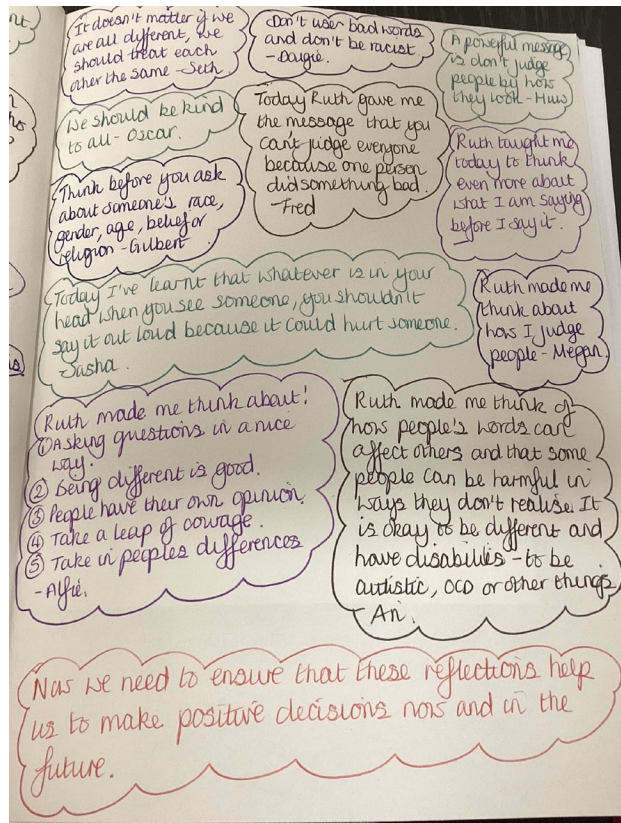 nt
It doesn't matter if we
are all different, we
should treat each
other the same - Seth.
Don't user bad words
and don't be racist
- Dougie.
A powerful message
is don't judge
people by how
they look - Huw
We should be kind
to all - Oscar.
Today Ruth gave me
the message that you
can't judge everyone
because one person
did something bad.
- Fred
Ruth taught me
today to think
even more about
what I am saying
before I say it.
Think before you ask
about someone's race,
gender, age, belief or
religion - Gilbert
Today I've learnt that whatever is in your
head when you see someone, you shouldn't
say it out loud because it could hurt someone.
- Sasha.
Ruth made me
think about
how I judge
people - Megan.
Ruth made me think about!
① Asking questions in a nice
way.
② Being different is good.
③ People have their own opinion.
④ Take a leap of courage.
⑤ Take in peoples differences
- Alfie.
Ruth made me think of
how people's words can
affect others and that some
people can be harmful in
ways they don't realise. It
is okay to be different and
have disabilies - to be
autistic, OCD or other things
Ari.
Now we need to ensure that these reflections help
us to make positive decisions now and in the
future.